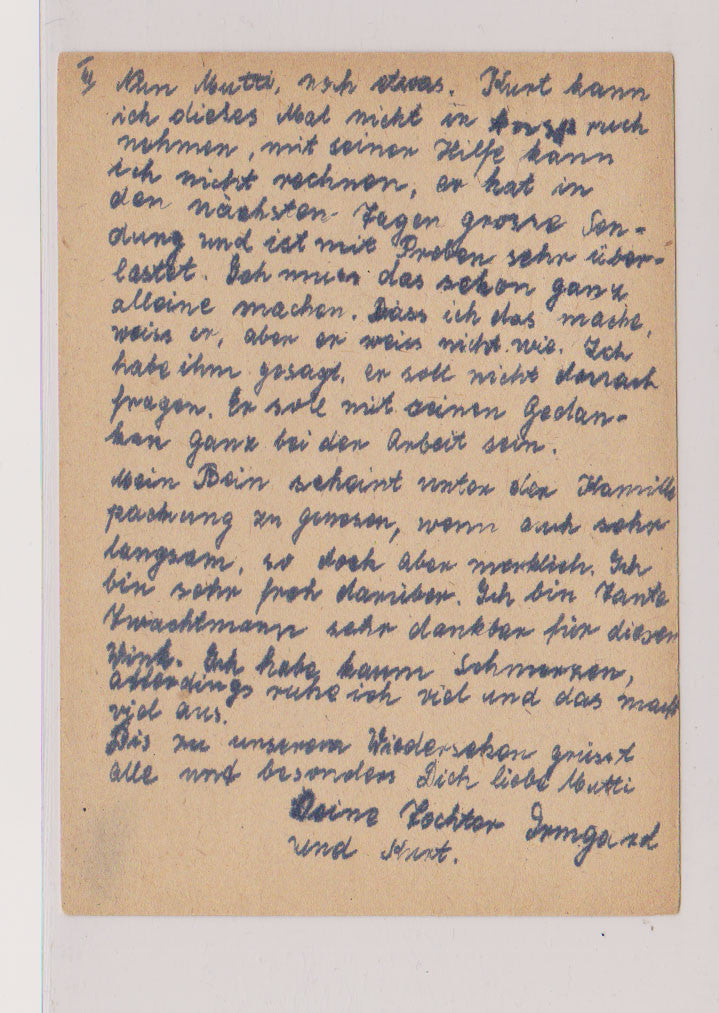 III) Nun Mutti, noch etwas. Kurt kann
ich dieses Mal nicht in Anspruch
nehmen, mit seiner Hilfe kann
ich nicht rechnen, er hat in
den nächsten Tagen grosse Sen-
dung und ist mit Proben sehr über-
lastet. Ich muss das schon ganz
alleine machen. Dass ich das mache,
weiss er, aber er weiss nicht wie. Ich
habe ihm gesagt, er soll nicht danach
fragen. Er soll mit seinen Gedan-
ken ganz bei der Arbeit sein.
Mein Bein scheint unter der Kamille
packung zu genesen, wenn auch sehr
langsam, so doch aber merklich. Ich
bin sehr froh darüber. Ich bin Tante
sehr dankbar für diesen
Wink. Ich habe kaum Schmerzen,
allerdings ruhe ich viel und das macht
viel aus.
Bis zu unserem Wiedersehen grüsst
alle und besonders Dich liebe Mutti
Deine Tochter Irmgard
und Kurt.